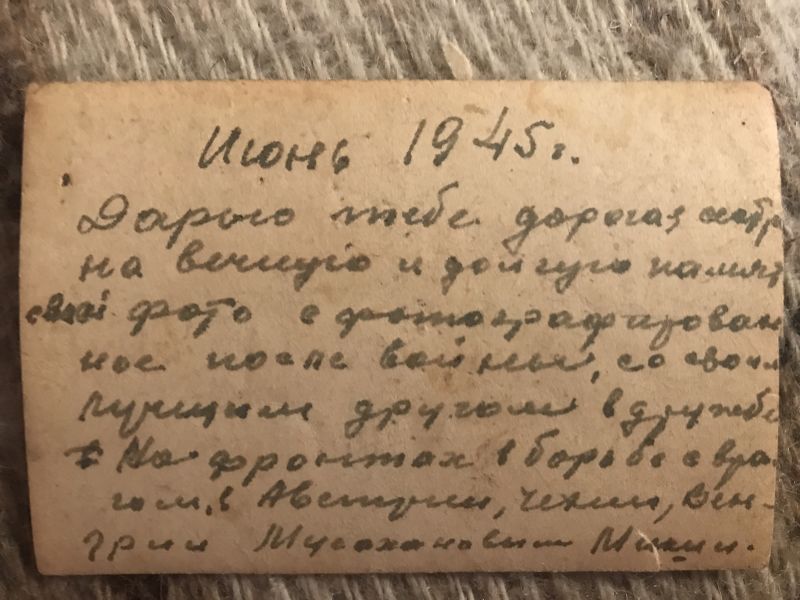 Июнь 1945 г.
Дарью тебе дорогая сестр
на вечную и долгую памят
свой фото сфотографирован
ное после войны, со своим
лучшим другом в дружбе
На фронтах в борьбе с вра
гом, в Австрии, Чехии, Вен-
грии Мусахановым Миши.